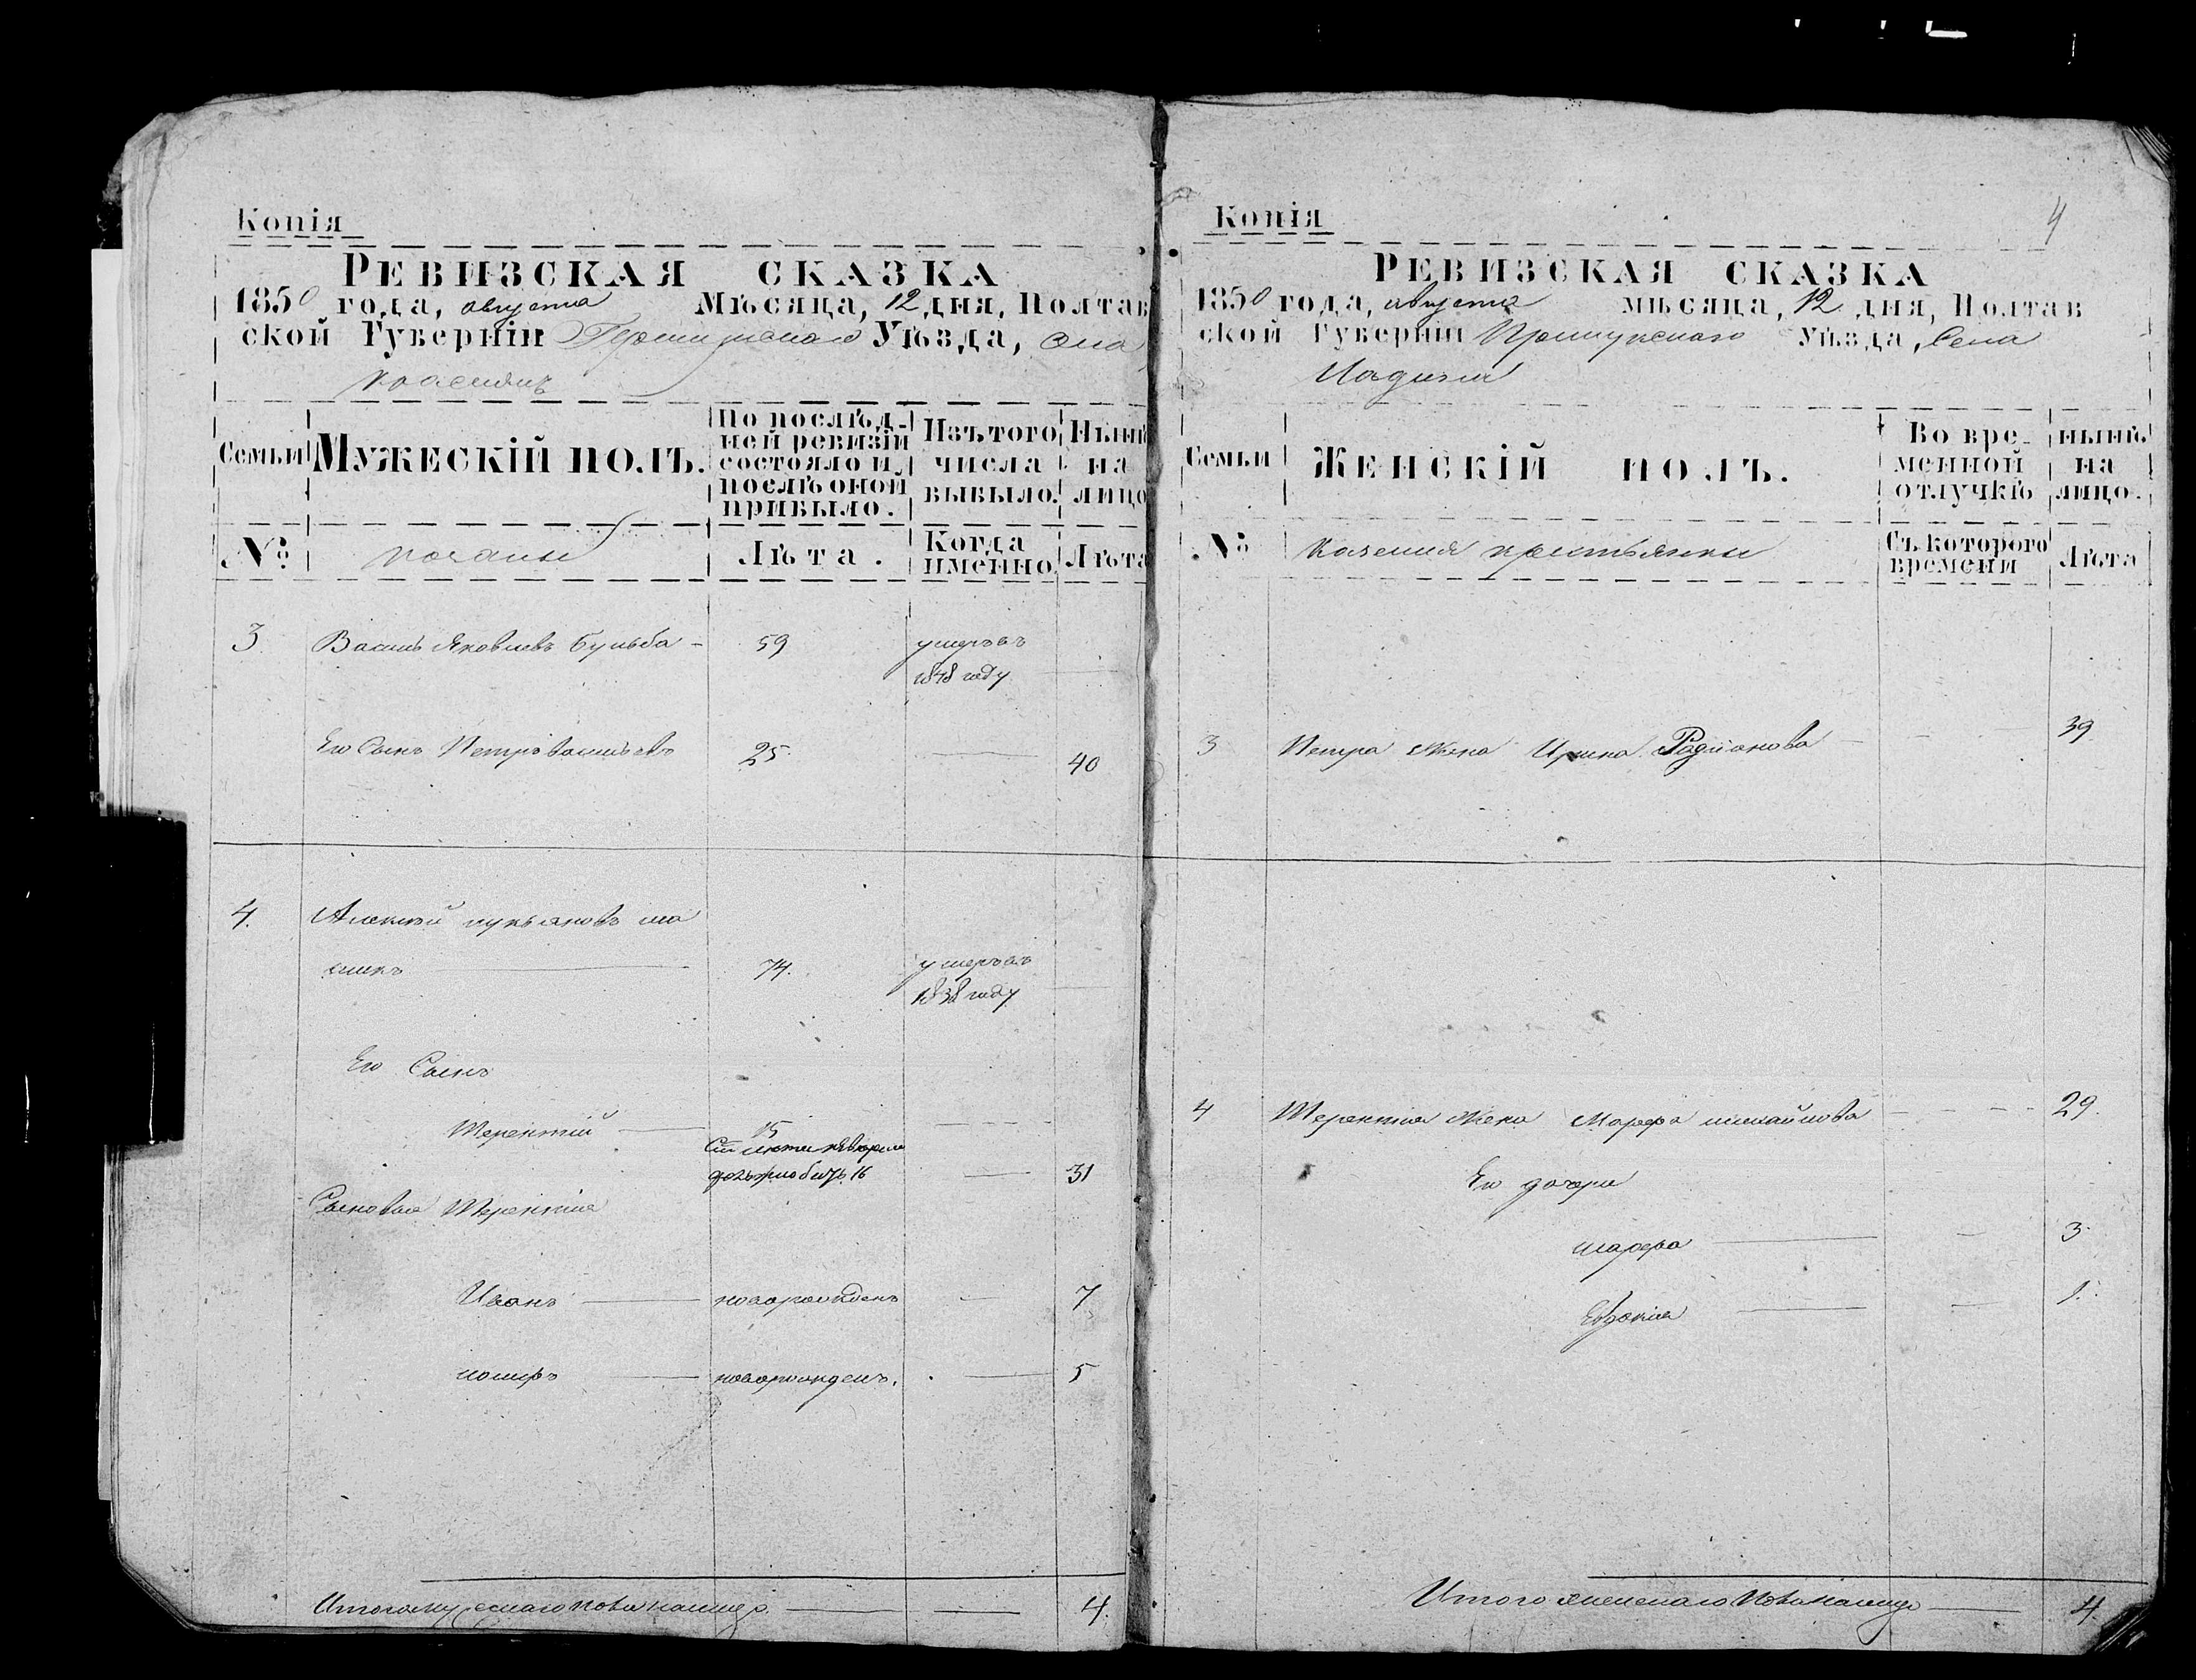 Копія
РЕВИЗСКАЯ СКАЗКА
1850 года, августа Мѣсяца, 12 дня, Полтав
ской Губерніи Прилуцкого Уѣзда,
Семьи
МУЖЕСКІЙ ПОЛЪ.
По послѣд-
ней ревизіи
состояло и
послѣ оной
прибыло.
Изъ того
числа
выбыло.
Нынѣ
на
лицо
№
Лѣта.
Когда
именно
Лѣта
3. Василь Яковлевъ Бульба - 59 умеръ въ
1848 году
Его Сынъ Петръ Васильевъ 25. 40
4. Алексѣй Лукьяновъ
74. умеръ въ
1838 году
Его Сынъ
Терентій 15
должно быть 16 31
Сыновья Терентія
Иванъ новорожденъ 7
новорожденъ. 5
Итого мужескаго пола на лицо 4.
Копія
4
РЕВИЗСКАЯ СКАЗКА
1850 года, августа мѣсяца, 12 дня, Полтав
ской Губерніи Прилуцкого Уѣзда, Села
Семьи
ЖЕНСКІЙ ПОЛЪ.
Во вре-
менной
отлучкѣ
нынѣ
на
лицо.
№ крестьянки
Съ которого
времени
Лѣта
3 Петра жена Ирина Радіонова 39
4 Терентія жена Марфа Михайлова 29.
Его дочери
Марфа 3
Евдокія 1.
Итого женскаго пола на лицо 4.